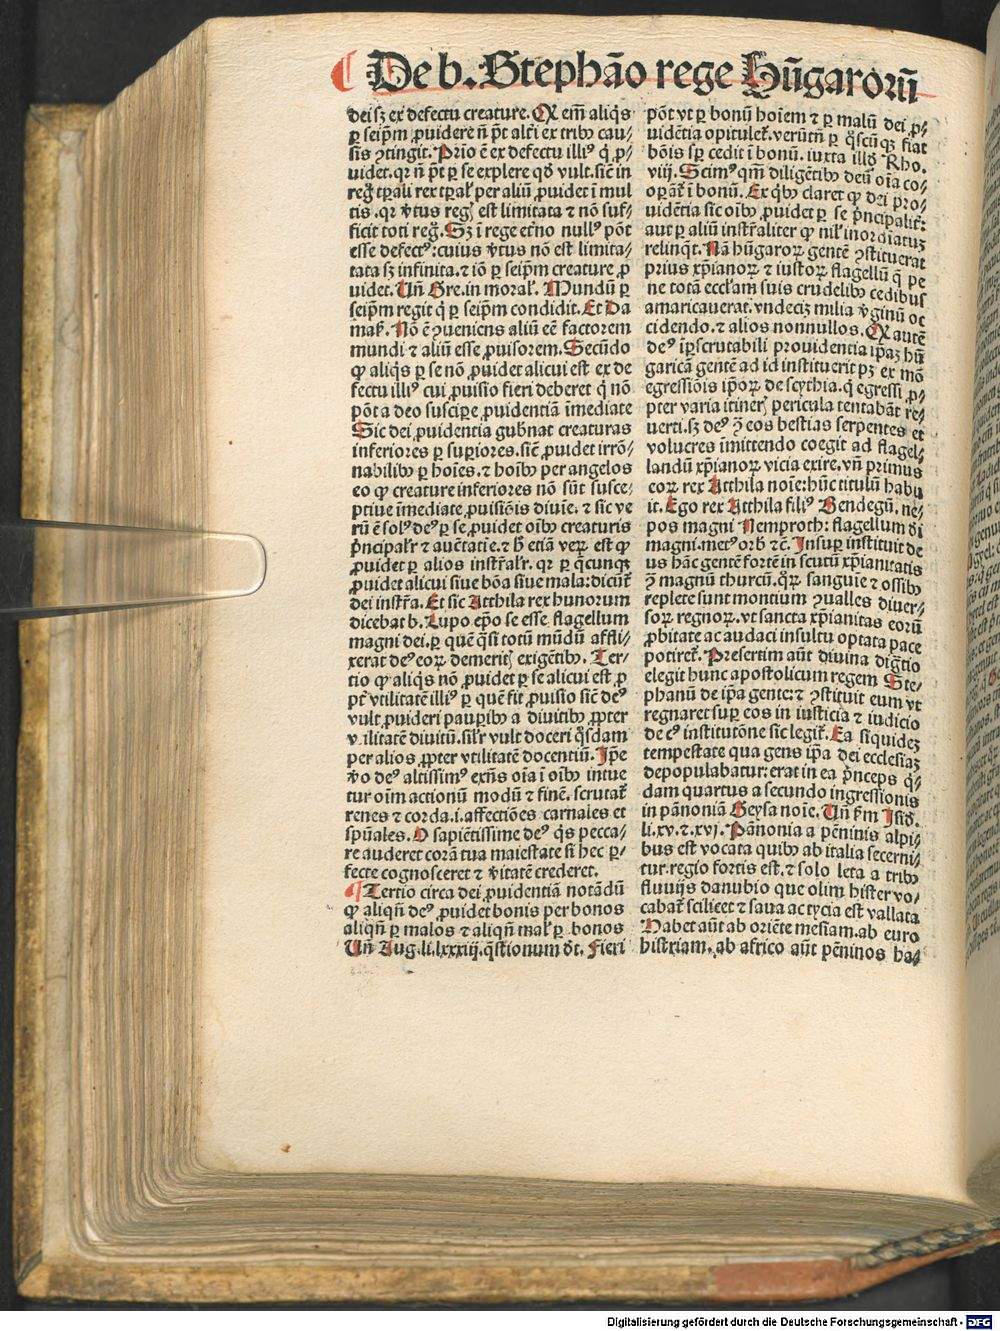 De b. Stephāo rege Hūgarorū
dei sꝫ ex defectu creature. Qꝫ em̄ aliq̄s
ꝑ seip̄m ꝓuidere n̄ p̄t alt̄i ex tribꝰ cau⸗
sis ꝯtingit. Prīo ē ex defectu illiꝰ q̄ ꝓ⸗
uidet. qꝛ n̄ p̄t ꝑ se explere qḋ vult. sic̄ in
reḡ tꝑali rex tꝑal' per aliū ꝓuidet ī mul
tis. qꝛ v̄tus reḡ est limitata ⁊ nō suf⸗
ficit toti reg̊. Sꝫ ī rege etn̄o nullꝰ pōt
esse defectꝰ: cuius v̄tus nō est limita⸗
tata sꝫ infinita. ⁊ iō ꝑ seip̄m creature ꝓ
uidet. Un̄ Gre. in moral'. Mundū ꝑ
seip̄m regit q̄ ꝑ seip̄m condidit. Et Da
mas̄. Nō ē ꝯueniens aliū eē factorem
mundi ⁊ aliū esse ꝓuisorem. Secūdo
ꝙ aliq̄s ꝑ se nō ꝓuidet alicui est ex de
fectu illiꝰ cui ꝓuisio fieri deberet q̄ nō
pōt a deo suscipe ꝓuidentiā īmediate
Sic dei ꝓuidentia gub̄nat creaturas
inferiores ꝑ suꝑiores. sic̄ ꝓuidet irrō⸗
nabilibꝰ ꝑ hoīes. ⁊ hoībꝰ per angelos
eo ꝙ creature inferiores nō sūt susce⸗
ptiue īmediate ꝓuisiōis diuīe. ⁊ sic ve
rū ē solꝰ deꝰ ꝑ se ꝓuidet oībꝰ creaturis
p̄ncipal'r ⁊ auc̄tatiē. ⁊ h̄ etiā veꝝ est ꝙ
ꝓuidet ꝑ alios instr̄al'r. qꝛ ꝑ q̄cunqꝫ
ꝓuidet alicui siue bōa siue mala: dicūt̄
dei instr̄a. Et sic Atthila rex hunorum
dicebat b. Lupo ep̄o se esse flagellum
magni dei. ꝑ quē q̄si totū mūdū affli⸗
xerat deꝰ eoꝝ demeritꝭ exigētibꝰ. Ter⸗
tio ꝙ aliq̄s nō ꝓuidet ꝑ se alicui est ꝓ
pt̄ vtilitatē illiꝰ ꝑ quē fit ꝓuisio sic̄ deꝰ
vult ꝓuideri pauꝑibꝰ a diuitibꝰ ꝓpter
v ilitatē diuitū. sil'r vult doceri q̊sdam
per alios ꝓpter vtilitatē docentiū. Ip̄e
v̊o deꝰ altissimꝰ exn̄s oīa ī oībꝰ intue
tur oīm actionū modū ⁊ finē. scrutat̄
renes ⁊ corda. i. affectiōes carnales et
spūales. O sapiētissime deꝰ q̄s pecca⸗
re auderet corā tua maiestate si hec ꝑ⸗
fecte cognosceret ⁊ v̄itatē crederet.
¶ Tertio circa dei ꝓuidentiā notādū
ꝙ aliqn̄ deꝰ ꝓuidet bonis per bonos
aliqn̄ ꝑ malos ⁊ aliqn̄ mal' ꝑ bonos
Un̄ Aug. li. lxxxiij. q̄stionum dt̄. Fieri
pōt vt ꝑ bonū hoīem ⁊ ꝑ malū dei ꝓ⸗
uidētia opitulet̄. verūtn̄ ꝑ q̊scūqꝫ fiat
bōis sꝑ cedit ī bonū. iuxta illḋ Rho.
viij. Scimꝰ qm̄ diligētibꝰ deū oīa co⸗
oꝑāt̄ ī bonū. Ex q̄bꝰ claret ꝙ dei pro⸗
uidētia sic oībꝰ ꝓuidet ꝑ se p̄ncipalit̄:
aut ꝑ aliū instr̄aliter ꝙ nil' inordīatuꝫ
relinq̄t. Nā hūgaroꝝ gentē ꝯstituerat
prius xp̄ianoꝝ ⁊ iustoꝝ flagellū q̄ pe
ne totā eccl'am suis crudelibꝰ cedibus
amaricauerat. vndeciꝫ milia v̄ginū oc
cidendo. ⁊ alios nonnullos. Qꝫ autē
deꝰ īꝑscrutabili prouidentia ip̄aꝫ hū
garicā gentē ad id instituerit pꝫ ex mō
egressiōis ip̄oꝝ de scythia. q̄ egressi ꝓ⸗
pter varia itinerꝭ pericula tentabāt re⸗
uerti. sꝫ deꝰ ꝯ̄ eos bestias serpentes et
volucres īmittendo coegit ad flagel⸗
landū xp̄ianoꝝ vicia exire. vn̄ primus
eoꝝ rex Atthila noīe: hūc titulū habu
it. Ego rex Atthila filiꝰ Bendegū. ne⸗
pos magni Nemproth: flagellum d̄i
magni. metꝰ orb̄ ⁊c̄. Insuꝑ instituit de
us hāc gentē fortē in scutū xp̄ianitatis
ꝯ̄ magnū thurcū. q̄ꝝ sanguīe ⁊ ossibꝰ
replete sunt montium ꝯualles diuer⸗
soꝝ regnoꝝ. vt sancta xp̄ianitas eorū
ꝓbitate ac audaci insultu optata pace
potiret̄. Presertim aūt diuina dig̊tio
elegit hunc apostolicum regem Ste⸗
phanū de ip̄a gente: ⁊ ꝯstituit eum vt
regnaret suꝑ eos in iusticia ⁊ iudicio
de cꝰ institutōne sic legit̄. Ea siquideꝫ
tempestate qua gens ip̄a dei ecclesiaꝫ
depopulabatur: erat in ea p̄nceps q̄⸗
dam quartus a secundo ingressionis
in pānoniā Geysa noīe. Un̄ ẜm Isid.
li. xv. ⁊. xvj. Pānonia a pēninis alpi⸗
bus est vocata quibꝰ ab italia secerni⸗
tur. regio fortis est. ⁊ solo leta a tribꝰ
fluuijs danubio que olim hister vo⸗
cabat̄ scilicet ⁊ saua ac tycia est vallata
Habet aūt ab oriēte mesiam. ab euro
histriam. ab africo aūt pēninos ha⸗
Digitalisierung gefördert durch die Deutsche Forschungsgemeinschaft - DFG